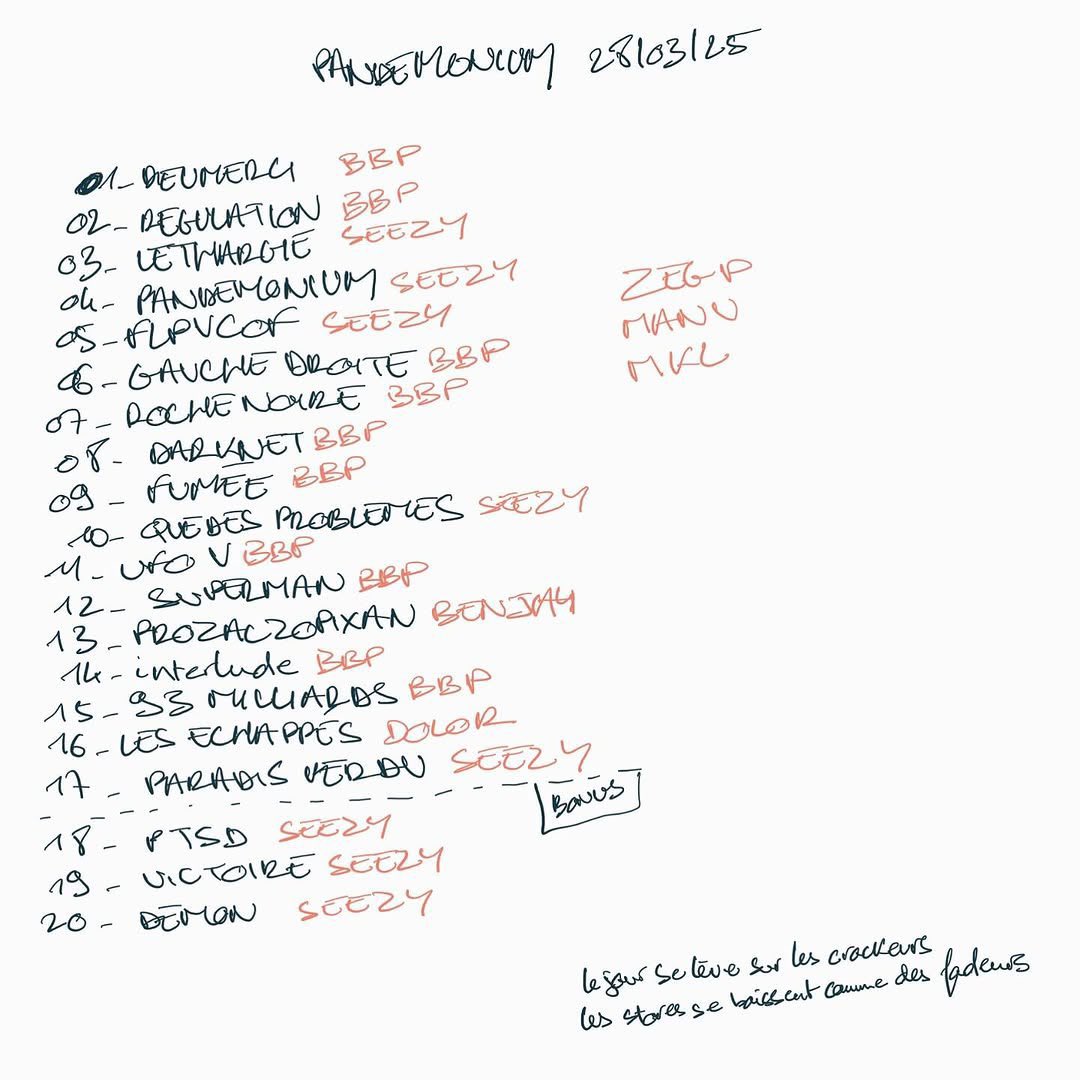 PANDEMONIUM 28/03/25
01- DEUMERCI BBP
02- REGULATION BBP
03- LETHARGIE SEEZY
04- PANDEMONIUM SEEZY
05- FLPVCOF SEEZY
06- GAUCHE DROITE BBP
07- ROCHE NOIRE BBP
08- DARKNET BBP
09- FUMÉE BBP
10- QUE DES PROBLEMES SEEZY
11- UFO V BBP
12- SUPERMAN BBP
13- PROZACZOPIXAN BENJAY
14- interlude BBP
15- 93 MILLIARDS BBP
16- LES ECHAPPÉS DOLOR
17- PARADIS VERDU SEEZY
BONUS
18- PTSD SEEZY
19- VICTOIRE SEEZY
20- DÉMON SEEZY
ZEG P
MANU
MKL
le jour se lève sur les crackeurs
les stores se baissent comme des fadeurs